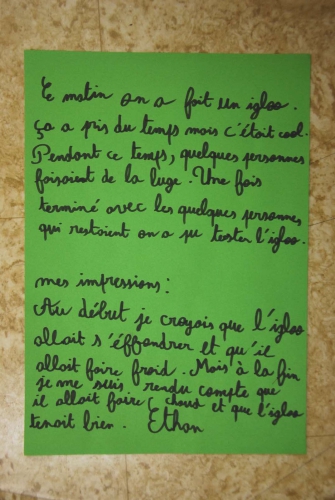 Ce matin on a fait un igloo.
ça a pris du temps mais c'était cool.
Pendant ce temps, quelques personnes
faisaient de la luge. Une fois
terminé avec les quelques personnes
qui restaient on a pu tester l'igloo.
mes impressions :
Au début je croyais que l'igloo
allait s'éffondrer et qu'il
allait faire froid. Mais à la fin
je me suis rendu compte que
il allait faire chaud et que l'igloo
tenait bien. Ethan